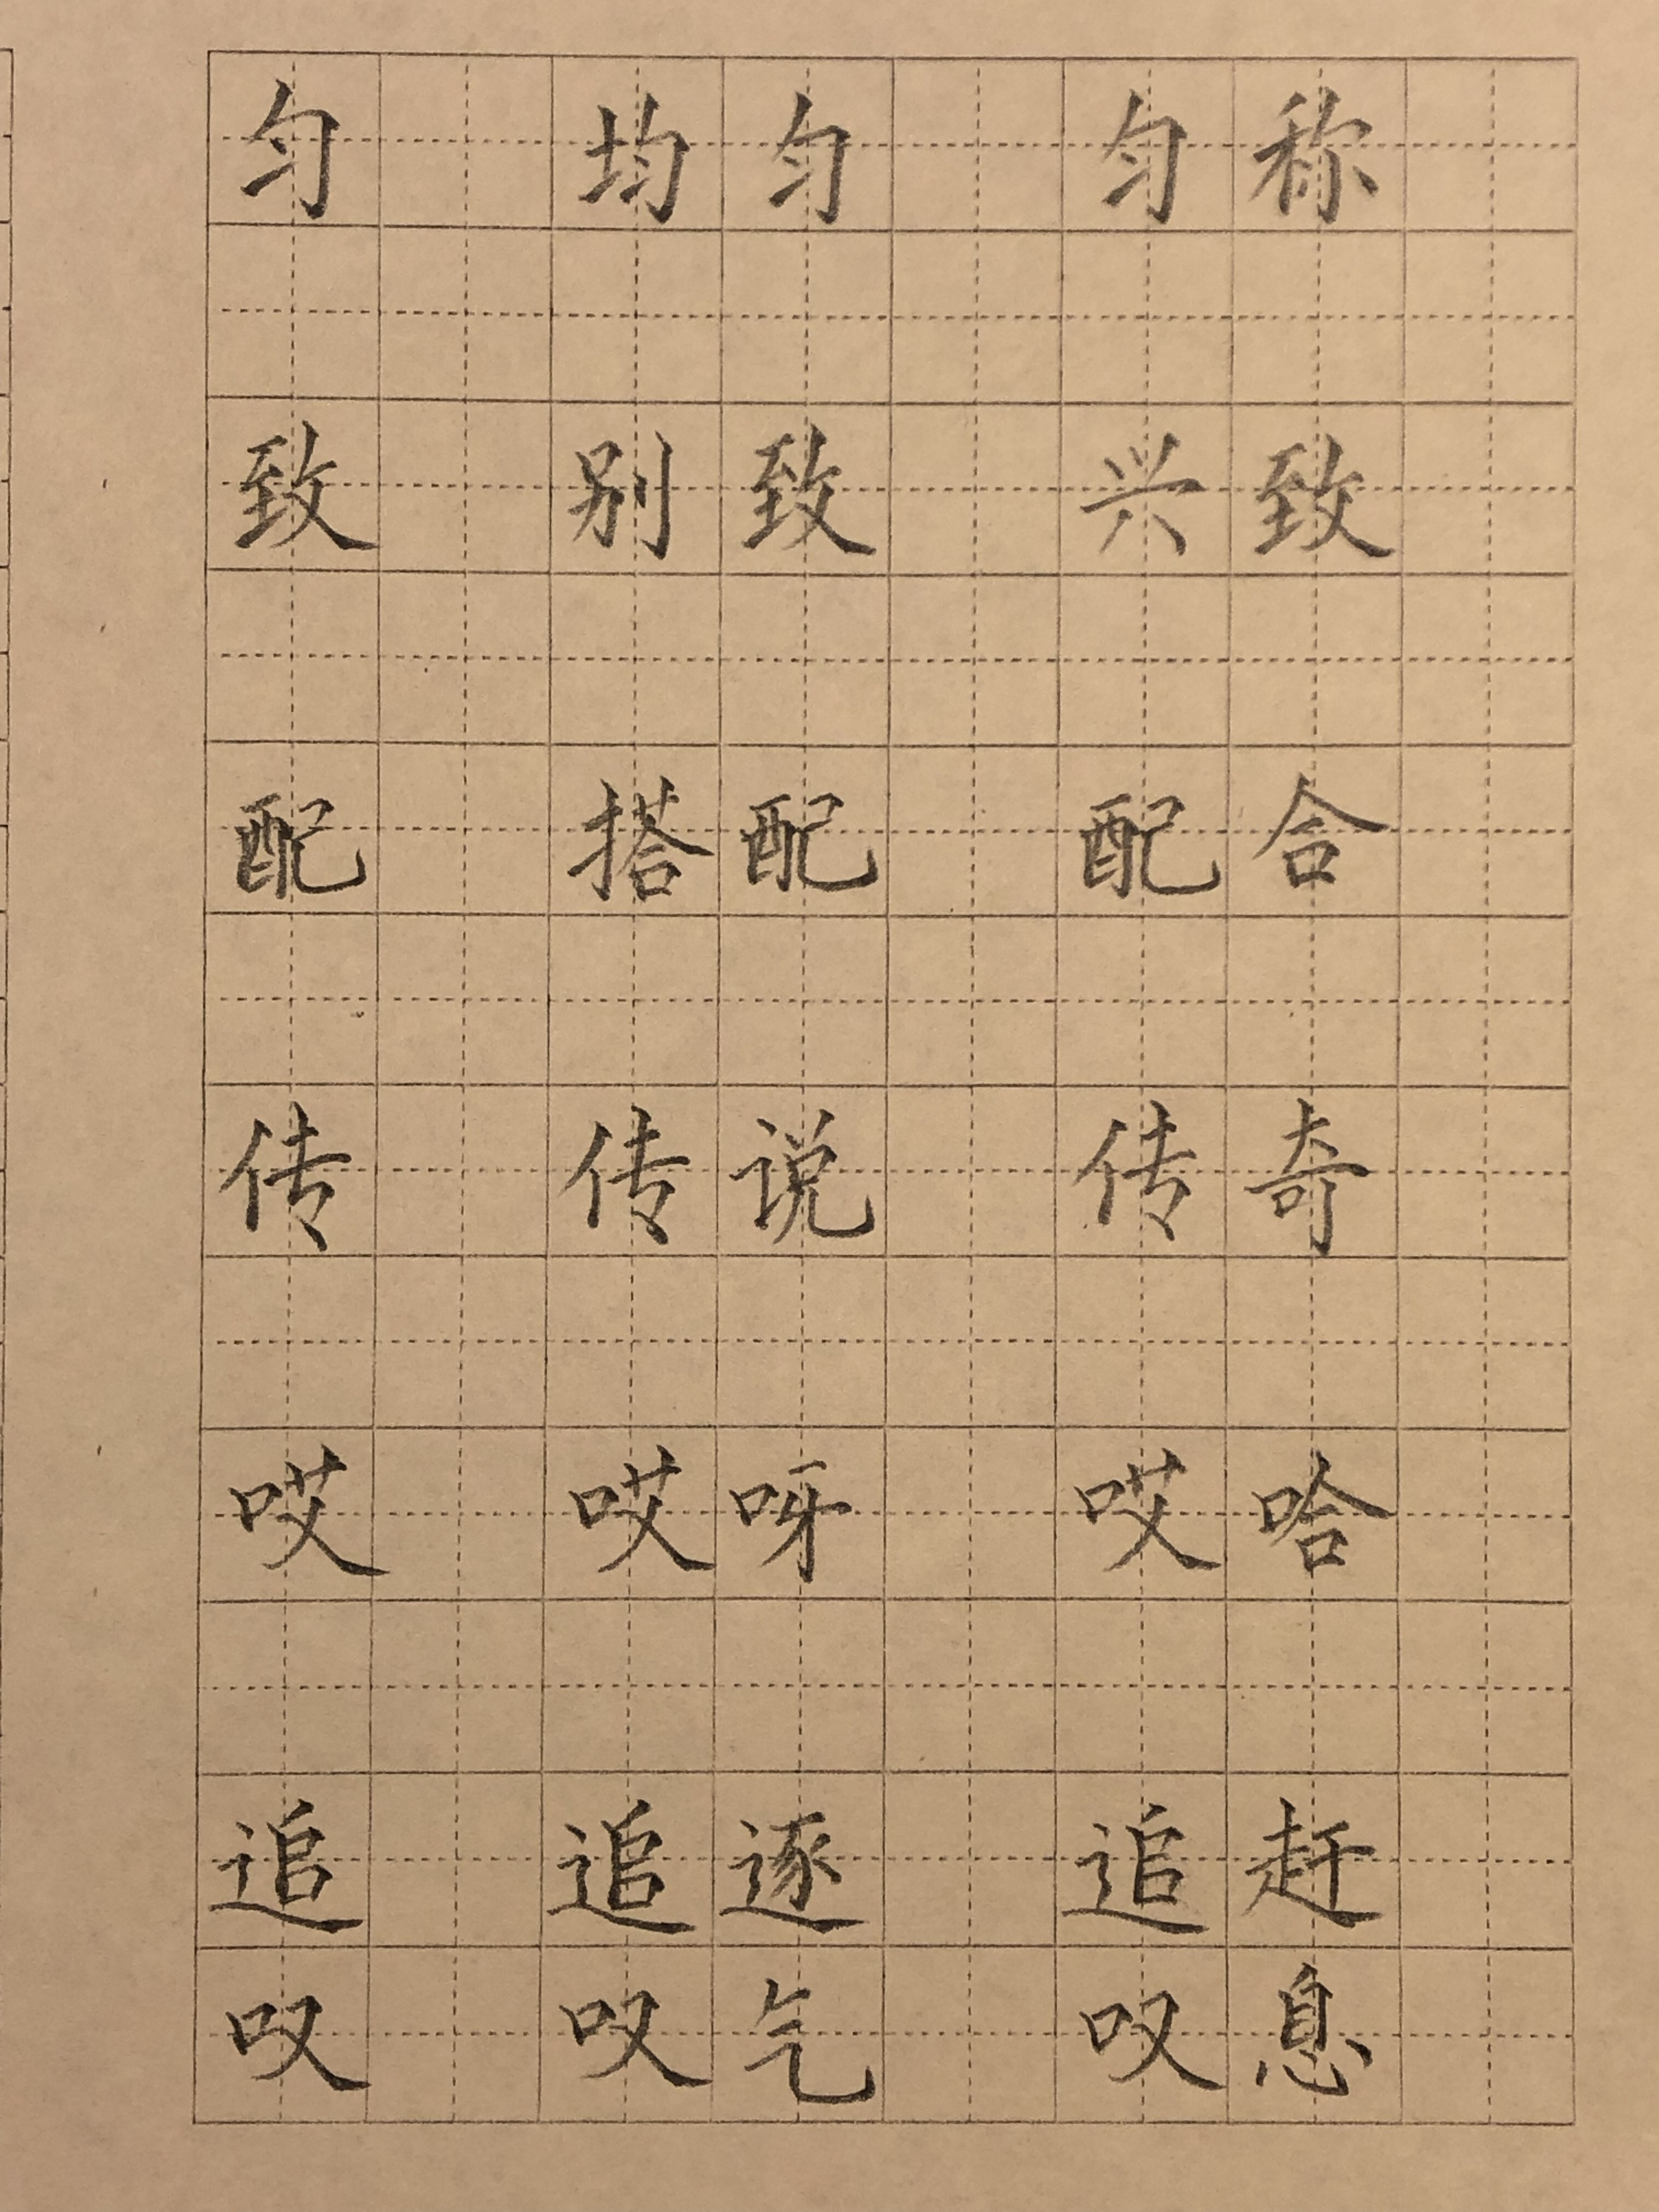 匀 均匀 匀称
致 别致 兴致
配 搭配 配合
传 传说 传奇
哎 哎呀 哎哈
追 追逐 追赶
叹 叹气 叹息